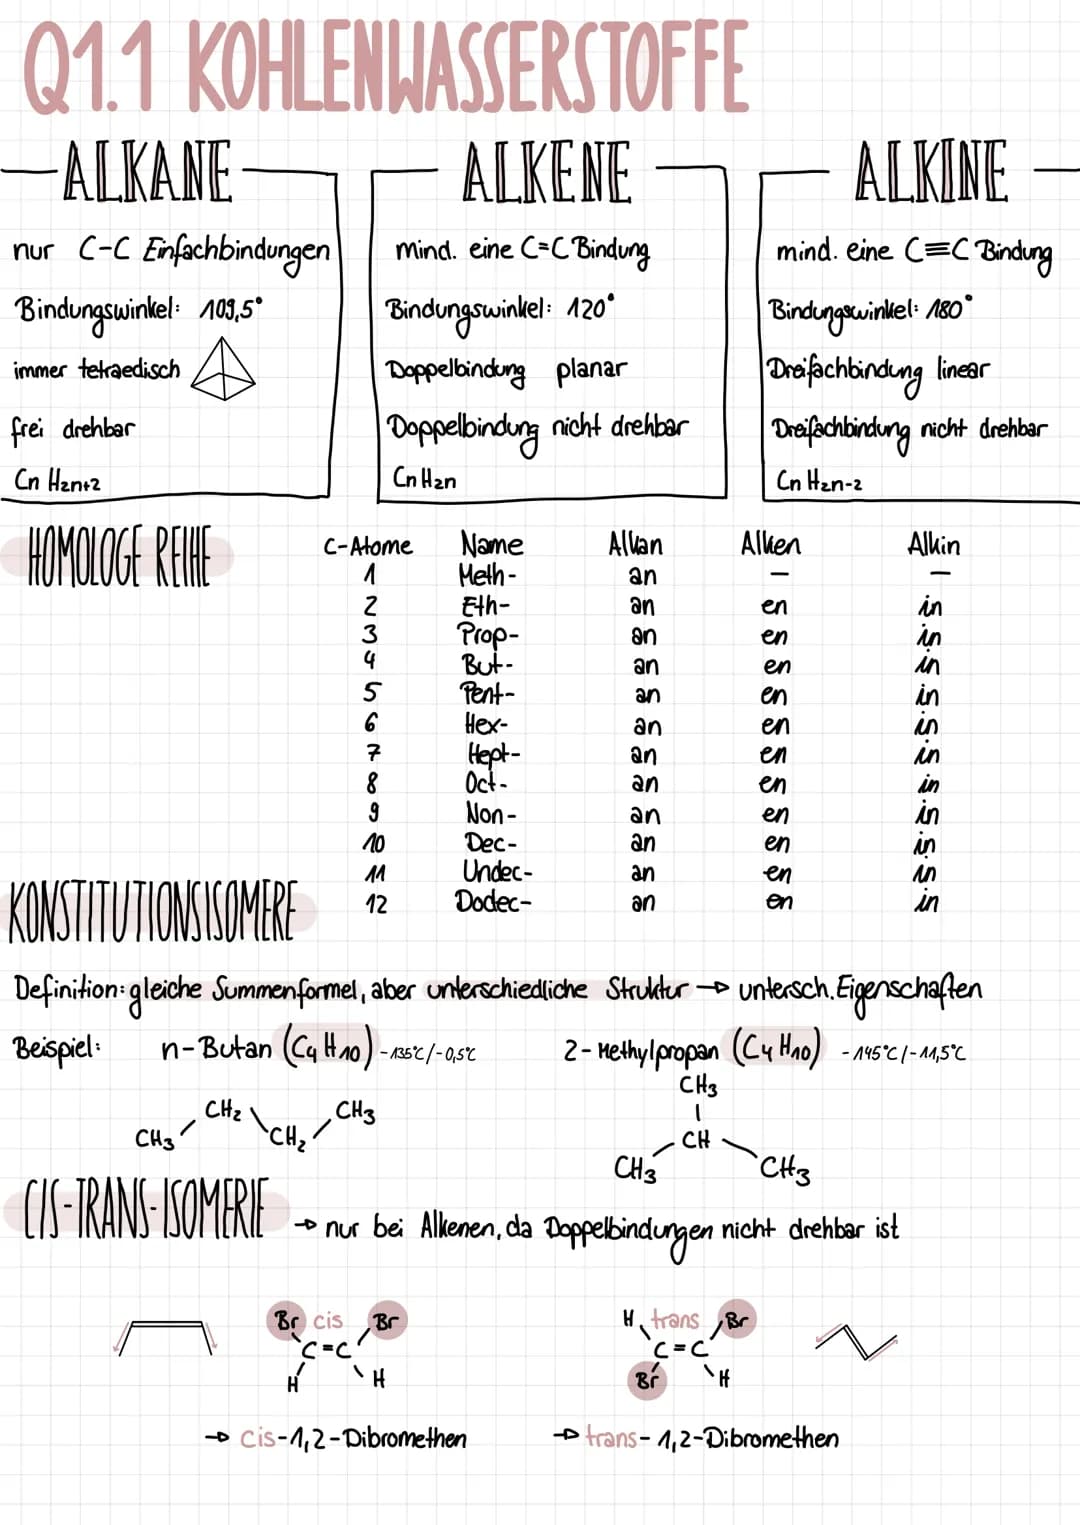 Q1.1 KOHLENWASSERSTOFFE
ALKANE
nur C-C Einfachbindungen
Bindungswinkel: 109,5°
immer tetraedisch
frei drehbar
CnH2n+2
ALKENE
mind. eine C=C Bindung
Bindungswinkel: 120°
Doppelbindung planar
Doppelbindung nicht drehbar
CnH2n
ALKINE
mind. eine C≡C Bindung
Bindungswinkel: 180°
Dreifachbindung linear
Dreifachbindung nicht drehbar
CnH2n-2
HOMOLOGE REIHE
C-Atome Name Alkan Alken Alkin
1 Meth- an – –
2 Eth- an en in
3 Prop- an en in
4 But- an en in
5 Pent- an en in
6 Hex- an en in
7 Hept- an en in
8 Oct- an en in
9 Non- an en in
10 Dec- an en in
11 Undec- an en in
12 Dodec- an en in
KONSTITUTIONSISOMERE
Definition: gleiche Summenformel, aber unterschiedliche Struktur → untersch. Eigenschaften
Beispiel: n-Butan (C4H10) -135°C/-0,5°C 2-Methylpropan (C4H10) -145°C/-11,5°C
CH3 CH2 CH2 CH3
CH3
CH
CH3 CH3
CIS-TRANS-ISOMERIE → nur bei Alkenen, da Doppelbindungen nicht drehbar ist
Br cis Br
C=C
H H
→ cis-1,2-Dibromethen
H trans Br
C=C
Br H
→ trans-1,2-Dibromethen